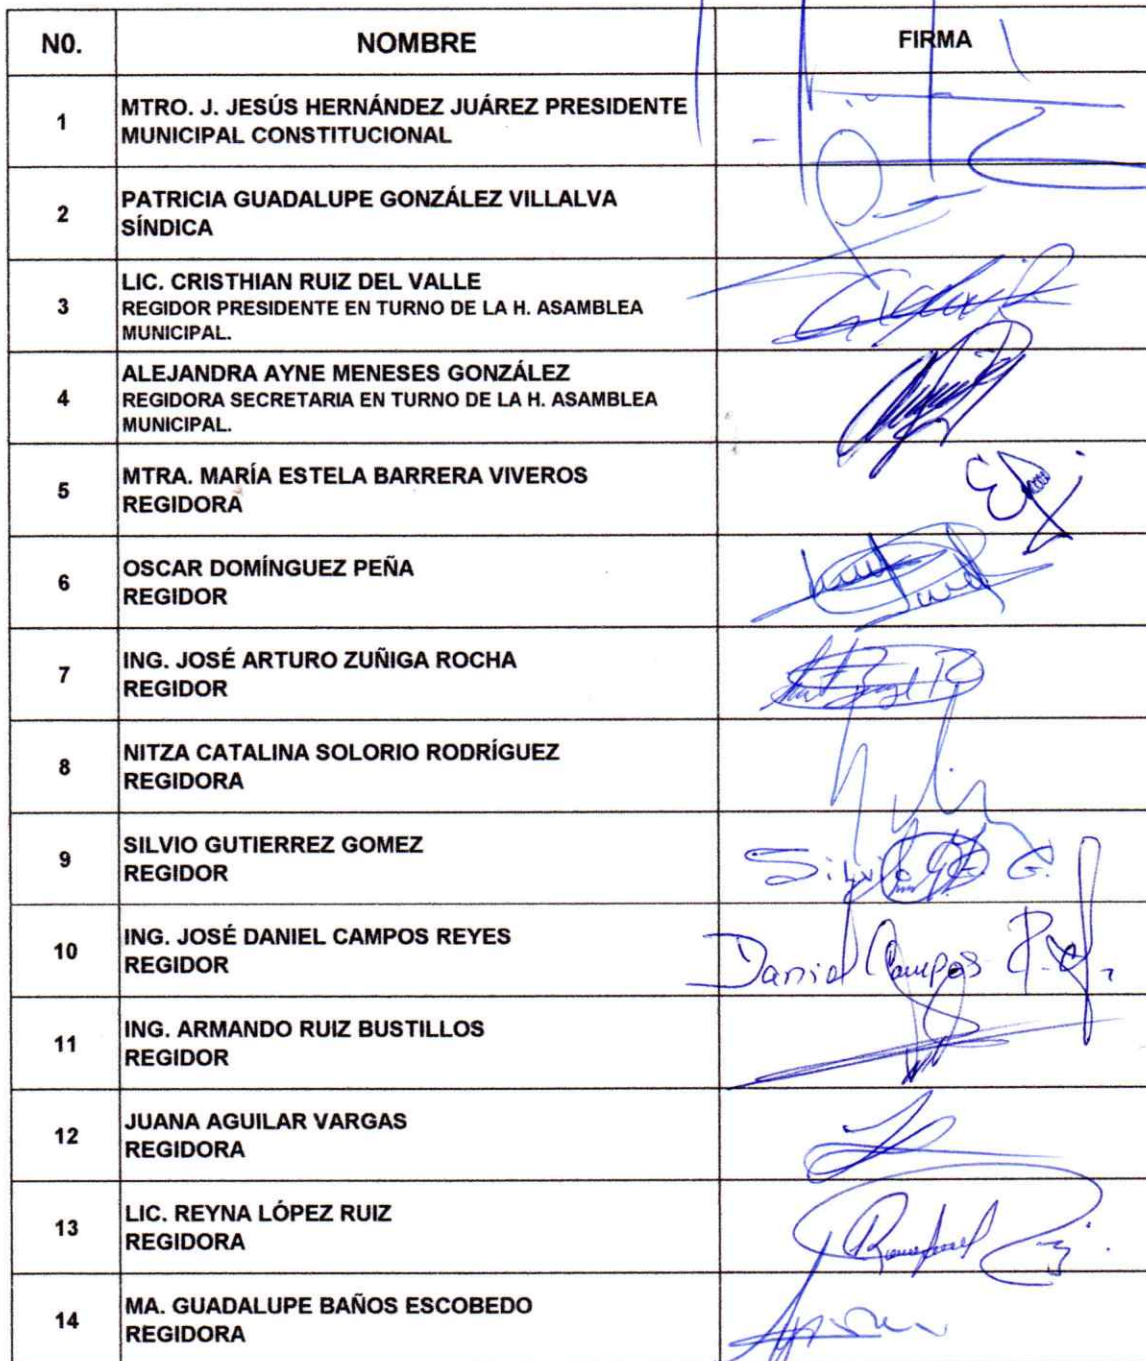 N0. NOMBRE FIRMA
1 MTRO. J. JESÚS HERNÁNDEZ JUÁREZ PRESIDENTE
MUNICIPAL CONSTITUCIONAL
2 PATRICIA GUADALUPE GONZÁLEZ VILLALVA
SÍNDICA
3 LIC. CRISTHIAN RUIZ DEL VALLE
REGIDOR PRESIDENTE EN TURNO DE LA H. ASAMBLEA
MUNICIPAL.
4 ALEJANDRA AYNE MENESES GONZÁLEZ
REGIDORA SECRETARIA EN TURNO DE LA H. ASAMBLEA
MUNICIPAL.
5 MTRA. MARÍA ESTELA BARRERA VIVEROS
REGIDORA
6 OSCAR DOMÍNGUEZ PEÑA
REGIDOR
7 ING. JOSÉ ARTURO ZUÑIGA ROCHA
REGIDOR
8 NITZA CATALINA SOLORIO RODRÍGUEZ
REGIDORA
9 SILVIO GUTIERREZ GOMEZ
REGIDOR
Silvio G. G.
10 ING. JOSÉ DANIEL CAMPOS REYES
REGIDOR
Daniel Campos R.
11 ING. ARMANDO RUIZ BUSTILLOS
REGIDOR
12 JUANA AGUILAR VARGAS
REGIDORA
13 LIC. REYNA LÓPEZ RUIZ
REGIDORA
14 MA. GUADALUPE BAÑOS ESCOBEDO
REGIDORA